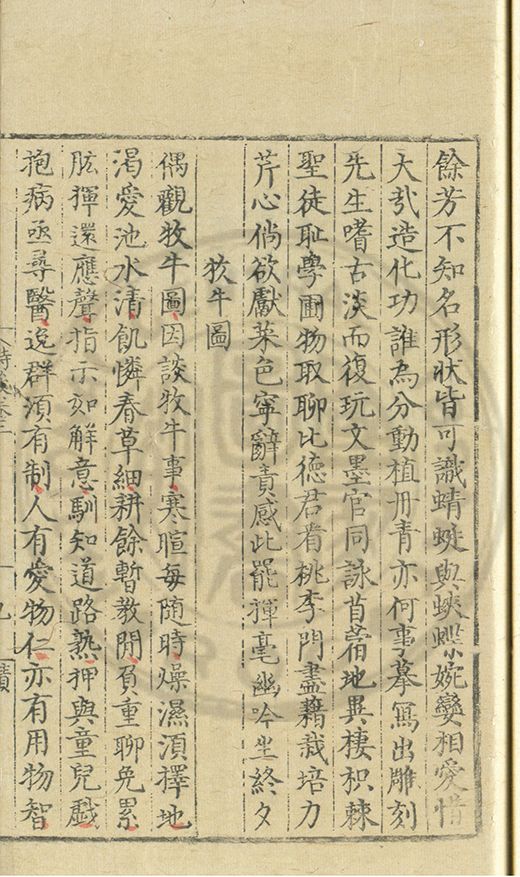 餘芳不知名形狀皆可識蜻蜓與蛺蝶婉孌相愛惜
大哉造化功誰為分動植丹青亦何事摹寫出雕刻
先生嗜古淡而復玩文墨官同詠苜蓿地異棲枳棘
聖徒耻學圃物取聊比德君看桃李門盡藉栽培力
芹心倘欲獻菜色寧辭責感此罷揮毫幽吟坐終夕
牧牛圖
偶觀牧牛圖因談牧牛事寒暄每隨時燥濕須擇地
渴愛池水清飢憐春草細耕餘暫教閒負重聊免累
肱揮還應聲指示如解意馴知道路熟狎與童兒戲
抱病亟尋醫逸群須有制人有愛物仁亦有用物智